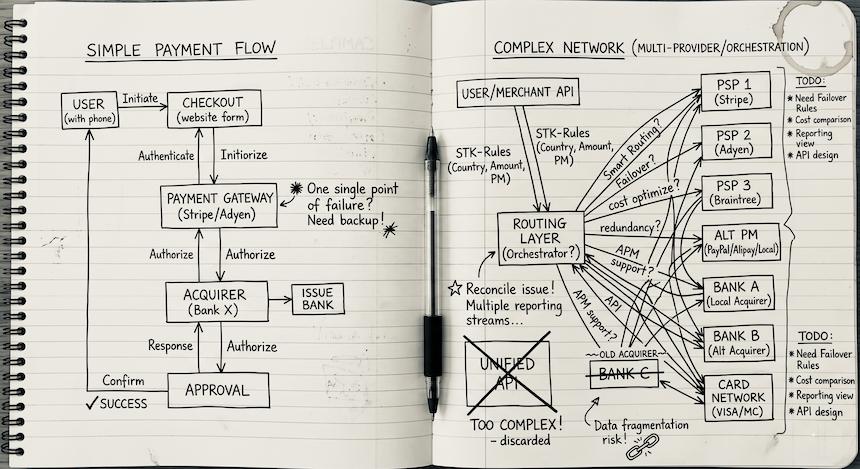 SIMPLE PAYMENT FLOW
USER
(with phone)
Initiate
CHECKOUT
(website form)
Authenticate
Initiorize
PAYMENT GATEWAY
(Stripe/Adyen)
One single point
of failure?
Need backup!
Authorize
Authorize
ACQUIRER
(Bank X)
ISSUE
BANK
Response
Authorize
Confirm
SUCCESS
APPROVAL
COMPLEX NETWORK (MULTI-PROVIDER/ORCHESTRATION)
USER/MERCHANT API
STK-Rules
(Country, Amount,
PM)
STK-Rules
(Country, Amount,
PM)
Smart Routing?
Failover?
cost optimize?
redundancy?
APM
support?
API
APM support?
ROUTING
LAYER
(Orchestrator?)
Reconcile issue!
Multiple reporting
streams...
UNIFIED
API
TOO COMPLEX!
- discarded
OLD ACQUIRER
BANK C
Data fragmentation
risk!
PSP 1
(Stripe)
PSP 2
(Adyen)
PSP 3
(Braintree)
ALT PM
(PayPal/Alipay/Local)
BANK A
(Local Acquirer)
BANK B
(Alt Acquirer)
CARD
NETWORK
(VISA/MC)
TODO:
Need Failover
Rules
Cost comparison
Reporting
view
API design
TODO:
Need Failover
Rules
Cost comparison
Reporting view
API design